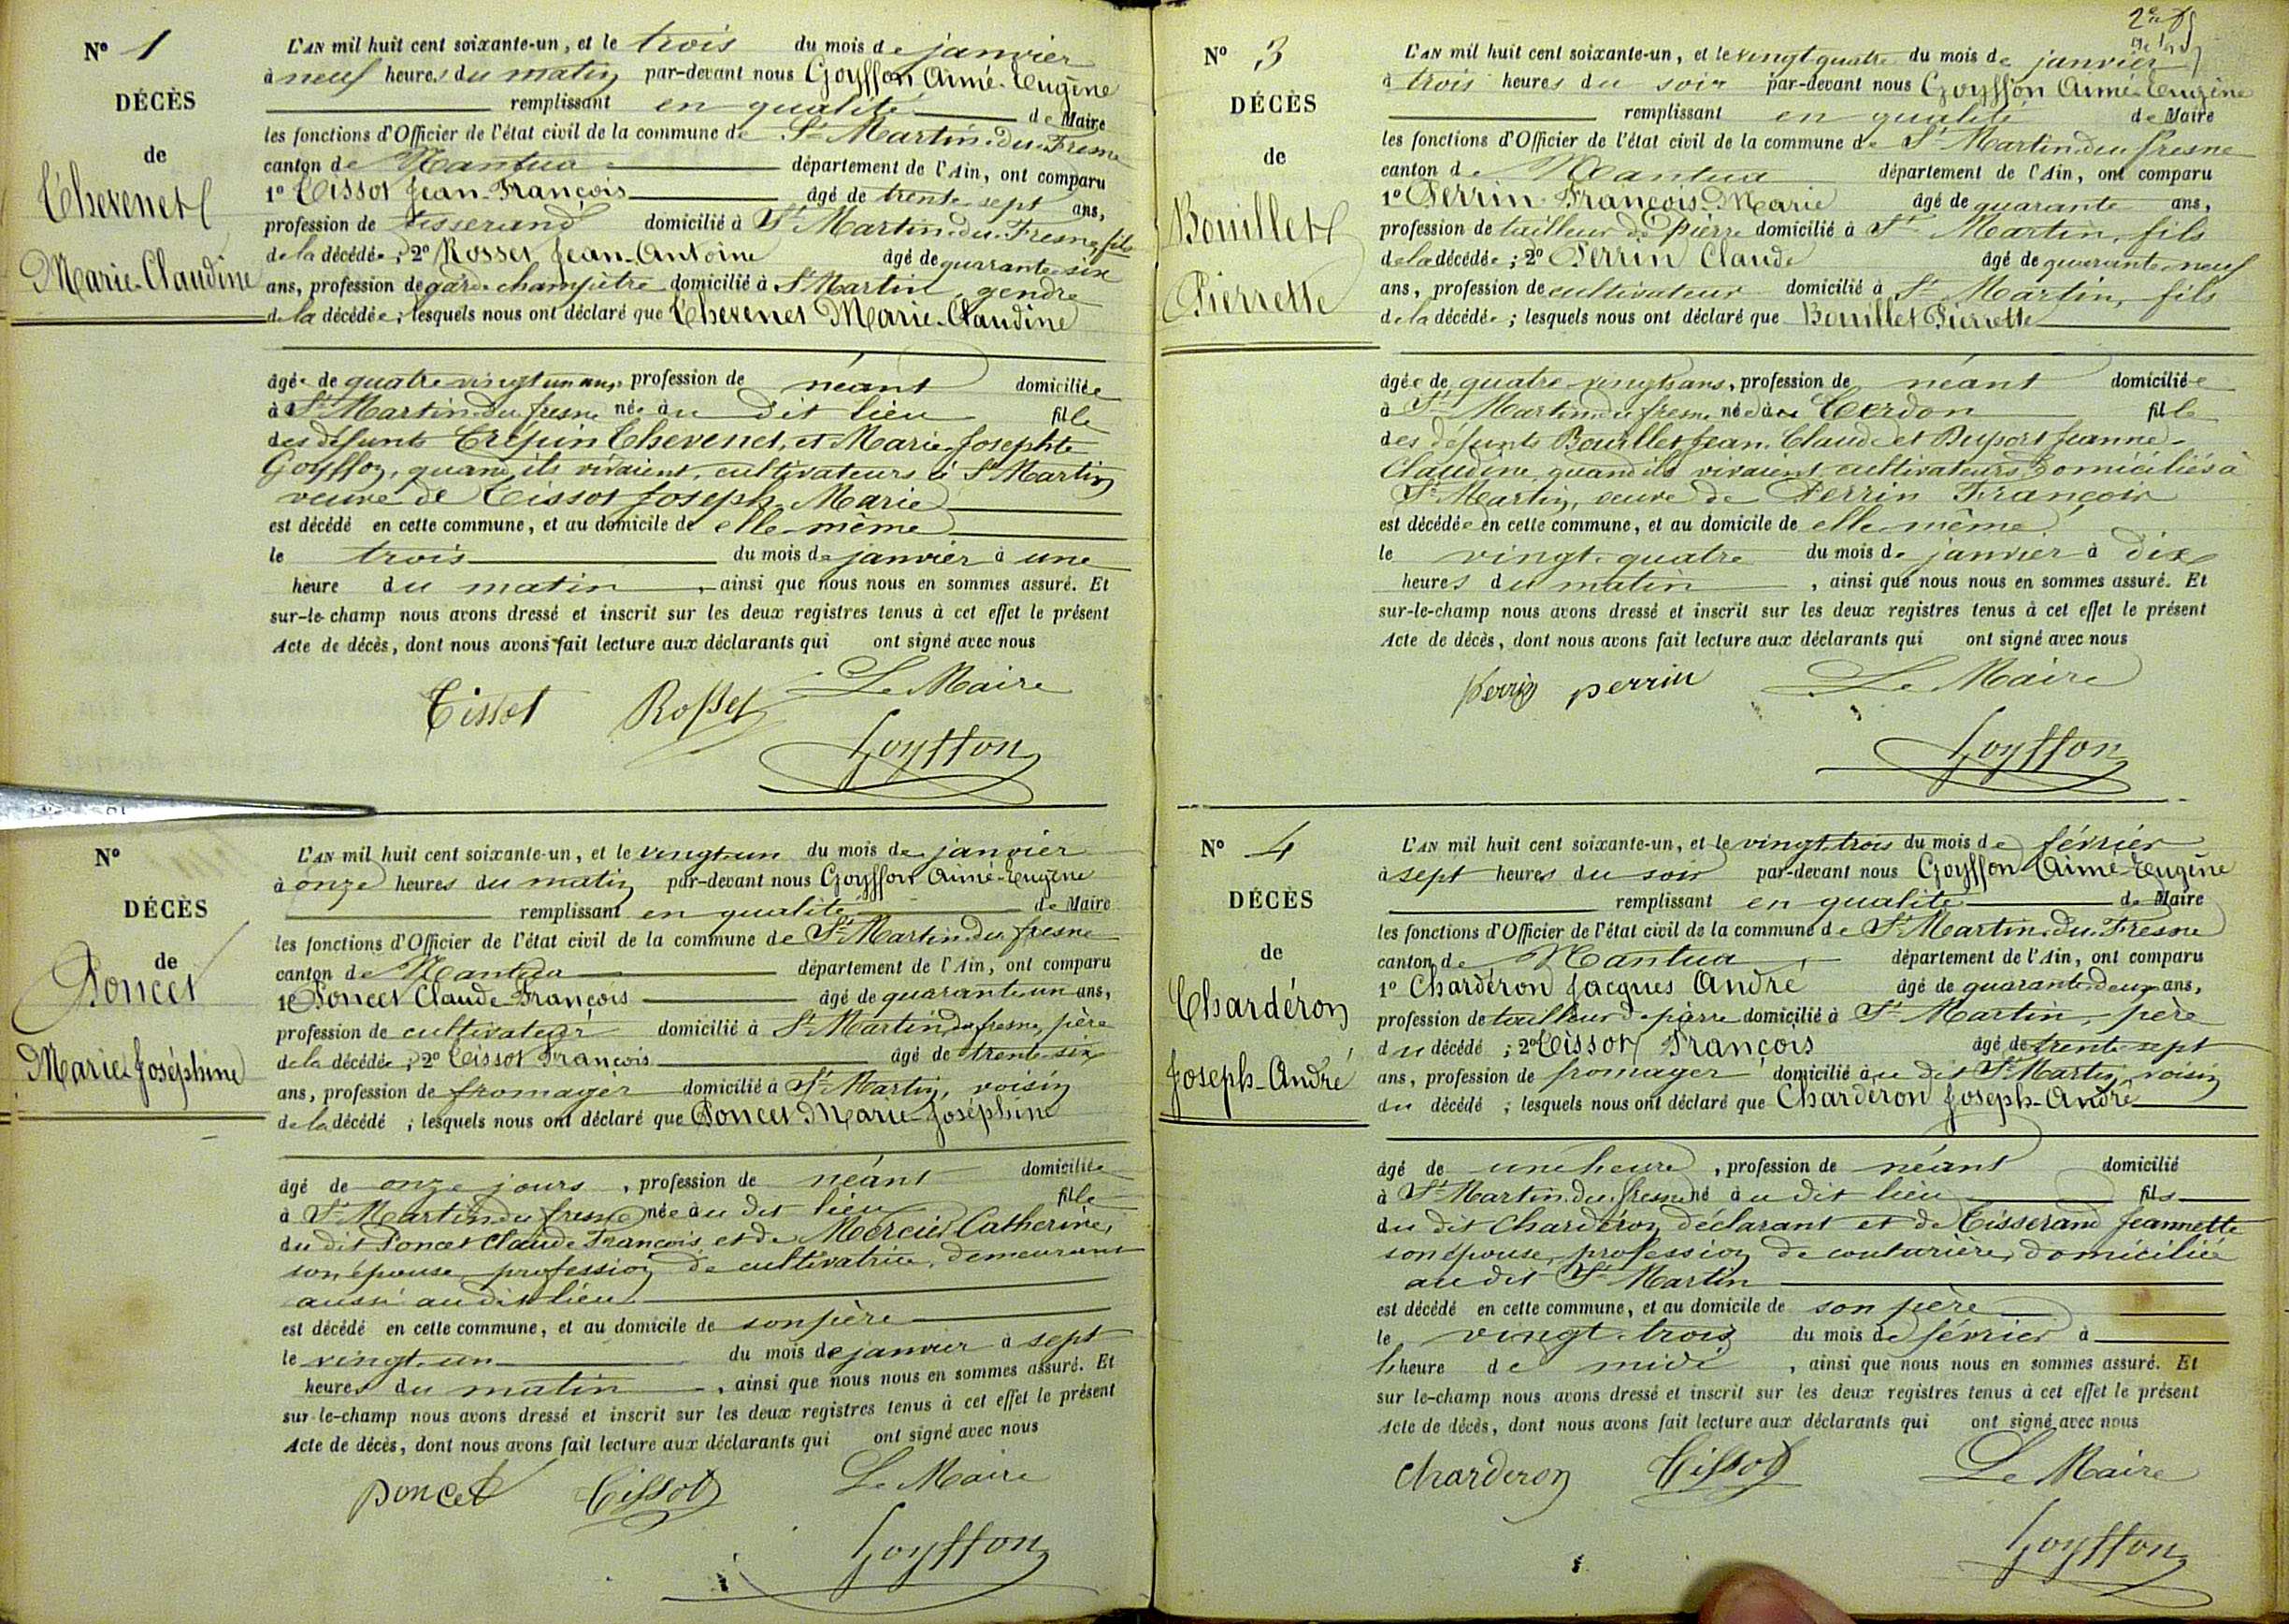 N° 1
DÉCÈS
de
Thevenet
Marie-Claudine
L'AN mil huit cent soixante-un, et le trois du mois de janvier
à neuf heures du matin par-devant nous Goyffon Aimé-Eugène
remplissant en qualité de Maire
les fonctions d'Officier de l'état civil de la commune de St Martin-du-Fresne
canton de Nantua département de l'Ain, ont comparu
1° Tissot Jean-François âgé de trente-sept ans,
profession de tisserand domicilié à St Martin-du-Fresne, fils
de la décédée; 2° Rosset Jean-Antoine âgé de quarante-six
ans, profession de garde-champêtre domicilié à St Martin, gendre
de la décédée; lesquels nous ont déclaré que Thevenet Marie-Claudine
âgée de quatre-vingt un ans, profession de néant domiciliée
à St Martin du fresne née au dit lieu fille
des défunts Crépin Thevenet, et Marie Josephte
Goyffon, quand ils vivaient, cultivateurs à St Martin
veuve de Tissot Joseph-Marie
est décédé en cette commune, et au domicile de elle-même
le trois du mois de janvier à une
heure du matin, ainsi que nous nous en sommes assuré. Et
sur-le-champ nous avons dressé et inscrit sur les deux registres tenus à cet effet le présent
Acte de décès, dont nous avons fait lecture aux déclarants qui ont signé avec nous
Tissot Rosset Le Maire
Goyffon
N°
DÉCÈS
de
Poncet
Marie-Joséphine
L'AN mil huit cent soixante-un, et le vingt-un du mois de janvier
à onze heures du matin par-devant nous Goyffon Aimé-Eugène
remplissant en qualité de Maire
les fonctions d'Officier de l'état civil de la commune de St Martin-du-fresne
canton de Nantua département de l'Ain, ont comparu
1° Poncet Claude-François âgé de quarante-un ans,
profession de cultivateur domicilié à St Martin du fresne, père
de la décédée; 2° Tissot François âgé de trente-six
ans, profession de fromager domicilié à St Martin, voisin
de la décédé; lesquels nous ont déclaré que Poncet Marie-Joséphine
âgé de onze jours, profession de néant domiciliée
à St Martin du fresne née au dit lieu fille
du dit Poncet Claude François et de Mercier Catherine,
son épouse, profession de cultivatrice, demeurant
aussi au dit lieu
est décédé en cette commune, et au domicile de son père
le vingt-un du mois de janvier à sept
heures du matin, ainsi que nous nous en sommes assuré. Et
sur-le-champ nous avons dressé et inscrit sur les deux registres tenus à cet effet le présent
Acte de décès, dont nous avons fait lecture aux déclarants qui ont signé avec nous
poncet Tissot Le Maire
Goyffon
N° 3
DÉCÈS
de
Bouillet
Pierrette
L'AN mil huit cent soixante-un, et le vingt quatre du mois de janvier
à trois heures du soir par-devant nous Goyffon Aimé-Eugène
remplissant en qualité de Maire
les fonctions d'Officier de l'état civil de la commune de St Martin-du-fresne
canton de Nantua département de l'Ain, ont comparu
1° Perrin François-Marie âgé de quarante ans,
profession de tailleur de pierre domicilié à St Martin, fils
de la décédée; 2° Perrin Claude âgé de quarante-neuf
ans, profession de cultivateur domicilié à St Martin, fils
de la décédée; lesquels nous ont déclaré que Bouillet Pierrette
âgée de quatre-vingts ans, profession de néant domiciliée
à St Martin du fresne née à Cerdon fille
des défunts Bouillet Jean-Claude et Duport Jeanne-
Claudine, quand ils vivaient cultivateurs domiciliés à
St Martin, veuve de Perrin François
est décédée en cette commune, et au domicile de elle-même
le vingt-quatre du mois de janvier à dix
heures du matin, ainsi que nous nous en sommes assuré. Et
sur-le-champ nous avons dressé et inscrit sur les deux registres tenus à cet effet le présent
Acte de décès, dont nous avons fait lecture aux déclarants qui ont signé avec nous
Perrin perrin Le Maire
Goyffon
N° 4
DÉCÈS
de
Chardéron
Joseph-André
L'AN mil huit cent soixante-un, et le vingt-trois du mois de février
à sept heures du soir par-devant nous Goyffon Aimé-Eugène
remplissant en qualité de Maire
les fonctions d'Officier de l'état civil de la commune de St Martin-du-Fresne
canton de Nantua département de l'Ain, ont comparu
1° Chardéron Jacques André âgé de quarante-deux ans,
profession de tailleur de pierre domicilié à St Martin, père
du décédé; 2° Tissot François âgé de trente-sept
ans, profession de fromager domicilié au dit St Martin, voisin
du décédé; lesquels nous ont déclaré que Chardéron Joseph-André
âgé de une heure, profession de néant domicilié
à St Martin du fresne né au dit lieu fils
du dit Chardéron déclarant et de Tisserand Jeannette
son épouse, profession de couturière, domiciliée
au dit St Martin
est décédé en cette commune, et au domicile de son père
le vingt-trois du mois de février à
l'heure de midi, ainsi que nous nous en sommes assuré. Et
sur le-champ nous avons dressé et inscrit sur les deux registres tenus à cet effet le présent
Acte de décès, dont nous avons fait lecture aux déclarants qui ont signé avec nous
Charderon Tissot Le Maire
Goyffon